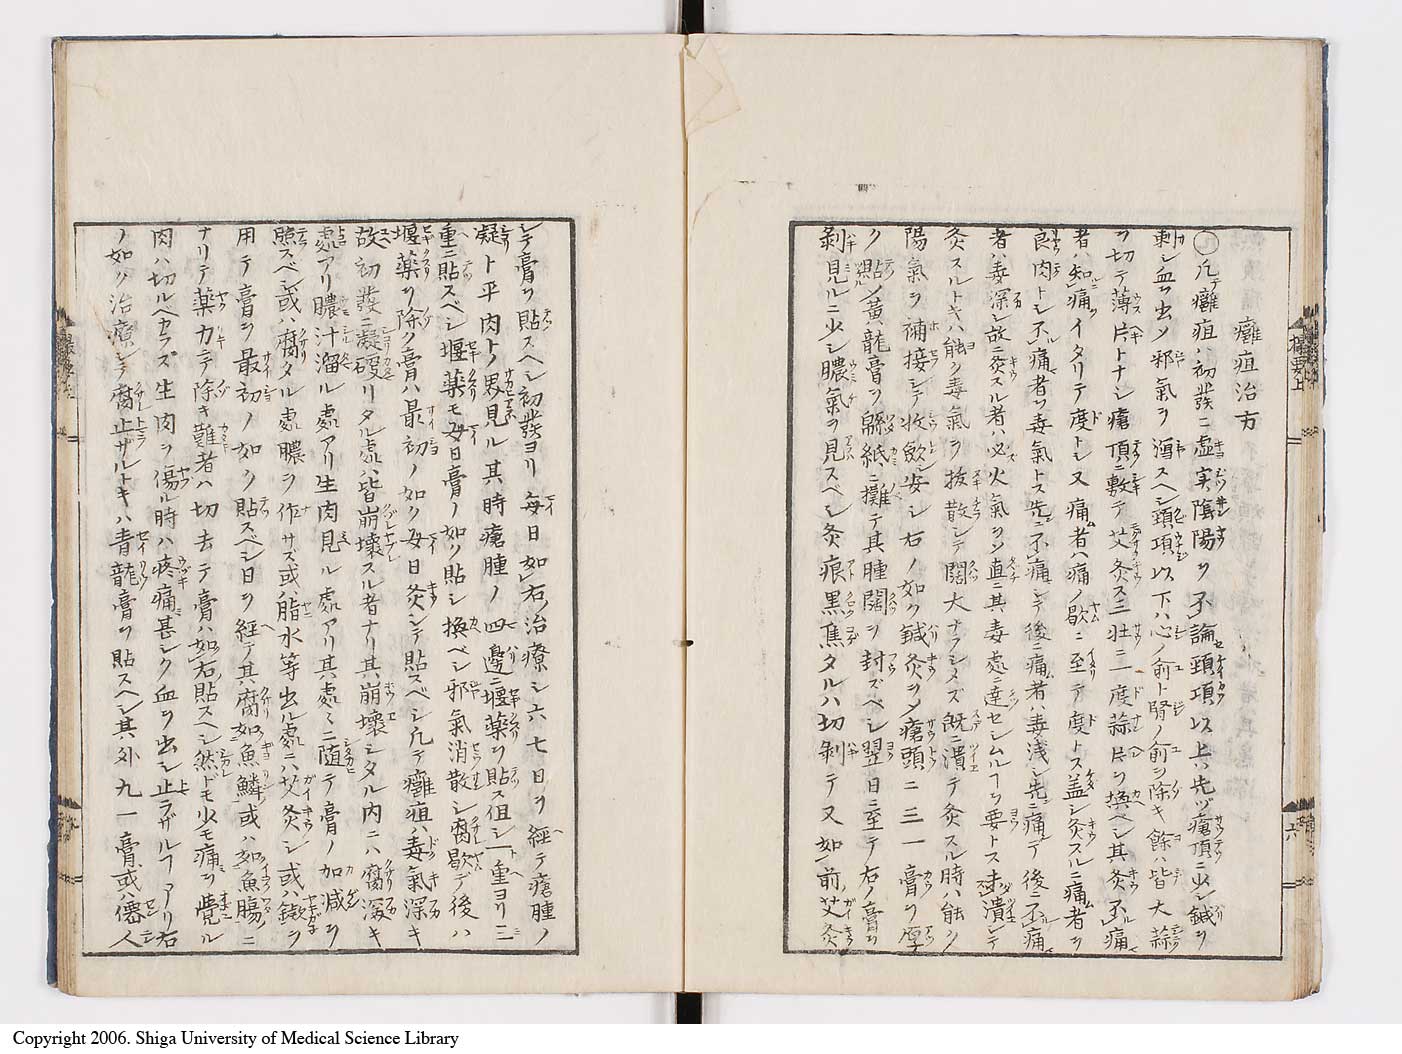 癰疽治方
凡癰疽ハ初發ニ虚実陰陽ヲ不論頭項以上ハ先ヅ瘡頂ニ少シ鍼ヲ
刺シ血ヲ出メ邪氣ヲ瀉スヘシ頚項以下ハ心ノ俞ト腎ノ俞ヲ除キ餘ハ皆大蒜
ヲ切テ薄片トナシ瘡頂ニ敷テ艾灸ス三壮ニ一度蒜片ヲ換ベシ其灸不痛
者ハ知痛イタリテ度トシ又痛者ハ痛ノ歇ニ至テ度トス盖シ灸スルニ痛者ヲ
良肉トシ不痛者ヲ毒氣トス先ニ不痛シテ後ニ痛者ハ毒浅シ先ニ痛テ後ニ不痛
者ハ毒深シ故ニ灸スル者ハ必火氣ヲシ直ニ其毒處ニ達セシムルヿヲ要トス未潰シテ
灸スルトキハ能ク毒氣ヲ抜散シテ闊大ナラシメズ既ニ潰テ灸スル時ハ能ク
陽氣ヲ補接シテ收歛シ安シ右ノ如ク鍼灸ヲメ瘡頭ニ三一膏ヲ厚
ク貼メ黄龍膏ヲ緜紙ニ攤テ其腫闊ヲ封ズベシ翌日ニ至テ右ノ膏ヲ
剝見ルニ少シ膿氣ヲ見スベシ灸痕黒焦タルハ切剝テ又如前艾灸
シテ膏ヲ貼スヘシ初發ヨリ毎日如右ノ治療シ六七日ヲ經テ瘡腫ノ
凝ト平肉トノ界見ル其時瘡腫ノ四邊ニ堰藥ヲ貼ス但シ一重ヨリ二
重ニ貼スベシ堰薬モ毎日膏ノ如ク貼シ換ベシ邪氣消散シ腐歇テ後ハ
堰薬ヲ除ク膏ハ最初ノ如ク毎日灸シテ貼スベシ凡テ癰疽ハ毒氣深キ
故初發ニ凝硬リタル處ハ皆崩壞スル者ナリ其崩壞シタル内ニハ腐深キ
處アリ膿汁溜ル處アリ生肉見ル處アリ其處々ニ随テ膏ノ加減ヲ
照スベシ或ハ腐タル處膿ヲ作サズ或ハ脂水等出ル處ニハ艾灸シ或ハ鍼ヲ
用テ膏ヲ最初ノ如ク貼スベシ日ヲ經テ其腐如魚鱗或ハ如魚腸ニ
ナリテ薬力ニテ除キ難者ハ切去テ膏ハ如右貼スヘシ然ドモ少モ痛ヲ覺ル
肉ハ切ルベカラズ生肉ヲ傷ル時ハ疼痛甚シク血ヲ出シ止ラザルヿアリ右
ノ如ク治療シテ腐止ザルトキハ青龍膏ヲ貼スヘシ其外九一膏或ハ僊人
六
Copyright 2006. Shiga University of Medical Science Library